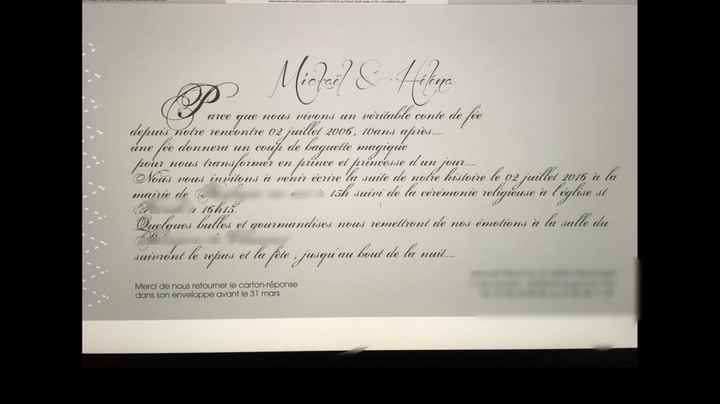 Mickaël & Héléna
Parce que nous vivons un véritable conte de fée
depuis notre rencontre 02 juillet 2006, 10ans après....
une fée donnera un coup de baguette magique
pour nous transformer en prince et princesse d un jour....
Nous vous invitons à venir écrire la suite de notre histoire le 02 juillet 2016 à la
mairie de 15h suivi de la cérémonie religieuse à l'église st
à 16h15.
Quelques bulles et gourmandises nous remettront de nos émotions à la salle du
suivront le repas et la fête , jusqu'au bout de la nuit....
Merci de nous retourner le carton-réponse
dans son enveloppe avant le 31 mars